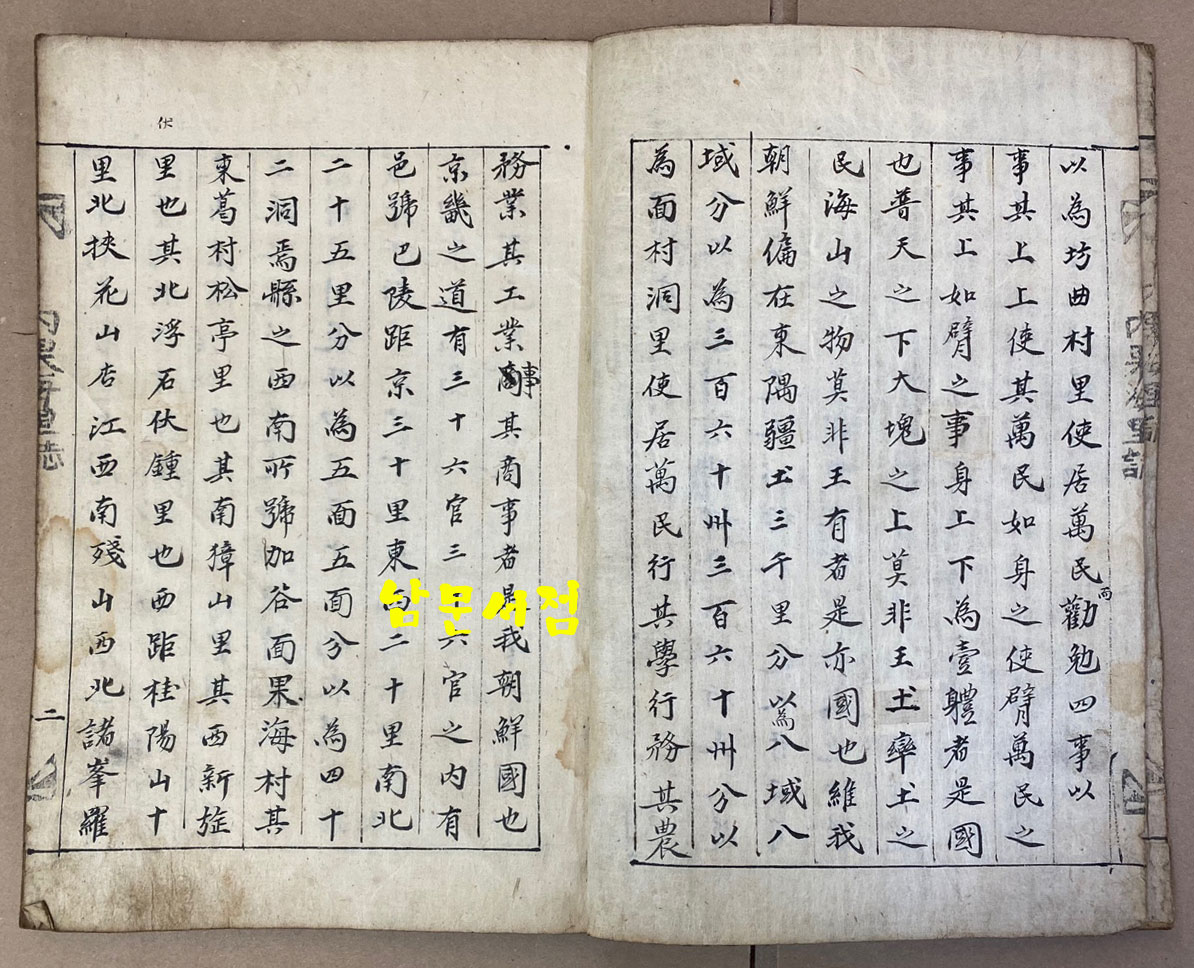 以為坊曲村里使居萬民而勸勉四事以
事其上上使其萬民如身之使臂萬民之
事其上如臂之事身上下為壹軆者是國
也普天之下大塊之上莫非王土率土之
民海山之物莫非王有者是亦國也維我
朝鮮偏在東隅疆土三千里分以為八域八
域分以為三百六十州三百六十州分以
為面村洞里使居萬民行其學行務其農
務業其工業事商其商事者是我朝鮮國也
京畿之道有三十六官三十六官之内有
邑號巴陵距京三十里東西二十里南北
二十五里分以為五面五面分以為四十
二洞焉縣之西南所號加谷面果海村其
東葛村松亭里也其南獐山里其西新旌
伏
里也其北浮石伏鍾里也西距桂陽山十
里北挾花山店江西南殘山西北諸峯羅
二
남문서점